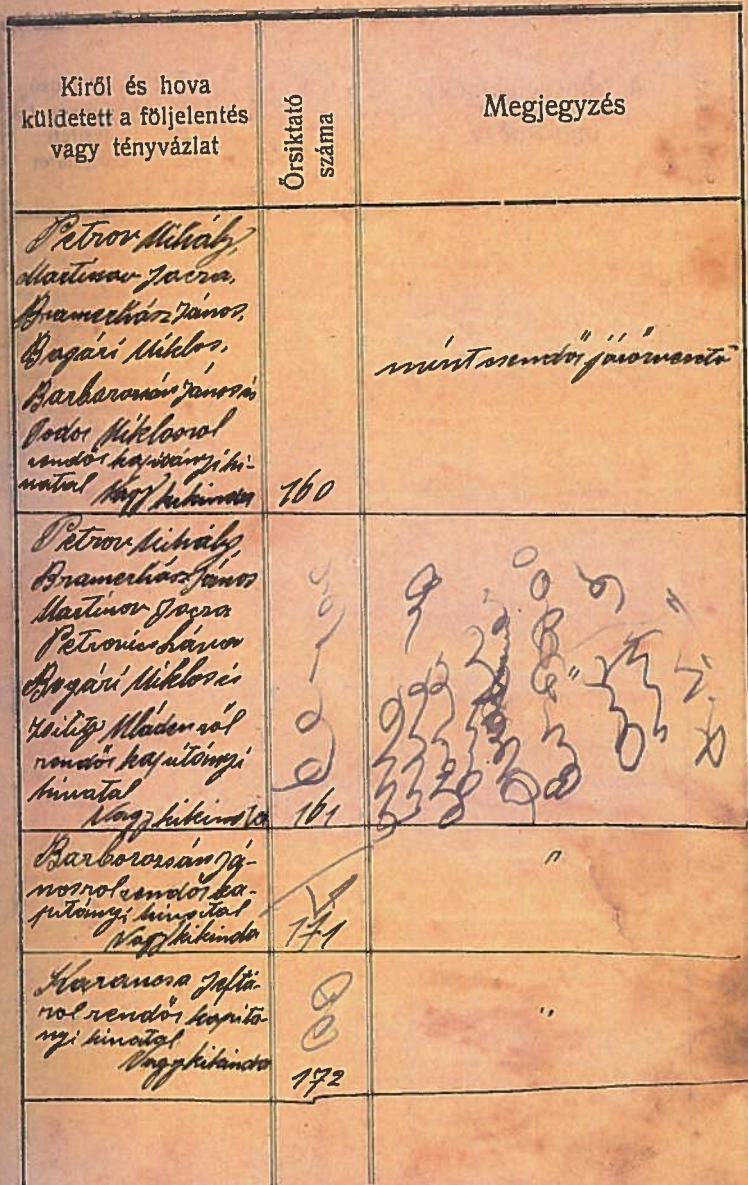 Kiről és hova
küldetett a följelentés
vagy tényvázlat
Őrsiktató
száma
Megjegyzés
Petrov Mihály,
Martinov Jacra,
Bramerhász János,
Bogári Miklos,
Barborozsán János és
Todor Miklosrol
rendőr kapitányi hi-
vatal Nagykikinda
160
mint csendőr járőrvezető
Petrov Mihály
Bramerhász János
Martinov Jacra
Bogári Miklos és
Mládenről
rendőr kapitányi
hivatal
Nagykikinda
161
"
Barborozsán Já-
nosrol rendőr ka-
pitányi hivatal
Nagykikinda
171
"
rol rendőr kapitá-
nyi hivatal
Nagykikinda
172
"